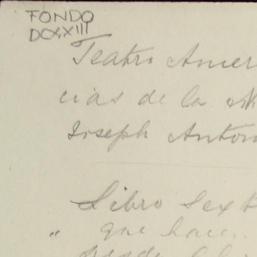 FONDO
DCXXIII
Teatro Amer
cias de la
Joseph Anton
Libro Sext
" que hace
desde